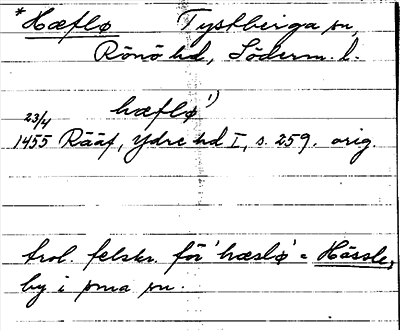 * Hæflø Tystberga sn,
Rönö hd, Söderm. l.
hæflø 1)
23/4
1455 Rääf, Ydre hd I, s. 259. orig.
trol. felskr. för 'hæslø' = Hässle,
by i sma sn.